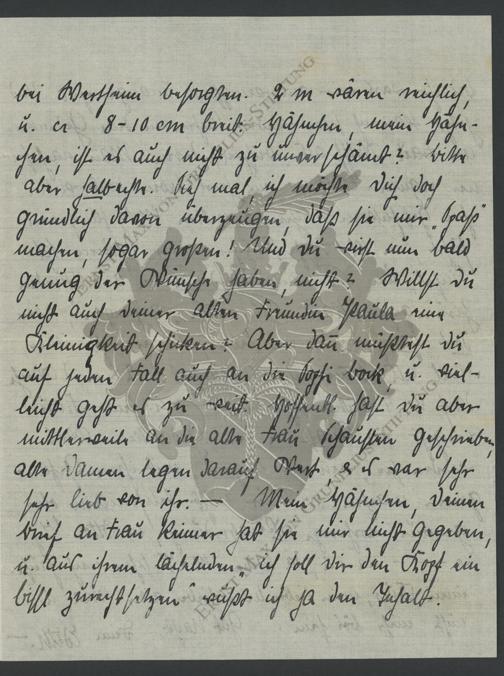 bei Wertheim besorgten. 2 m wären reichlich,
u. ca 8-10 cm breit. Hähnchen, mein Hähn-
chen, ist es auch nicht zu unverschämt? bitte
aber halbechte. Sieh mal, ich möchte Dich doch
gründlich davon überzeugen, daß sie mir "Spaß"
machen, sogar großen! Und du wirst nun "bald
genug der Wünsche haben, nicht? Willst du
nicht auch deiner alten Freundin Paula eine
Kleinigkeit schicken? Aber dann müßtest du
auf jeden Fall auch an die Sophi Bock, u. viel-
leicht geht es zu weit. Hoffentl. hast du aber
mittlerweile an die alte Frau geschrieben,
alte Damen legen darauf Wert & es war sehr
sehr lieb von ihr. — Mein Hähnchen, deinen
brief an Frau Reimer hat sie mir nicht gegeben,
u. aus ihrem lächelnden "ich soll dir den Kopf ein
bißl zurechtsetzen" wüßt ich ja den Inhalt.
ERNST MASSON GRUNELIUS-STIFTUNG